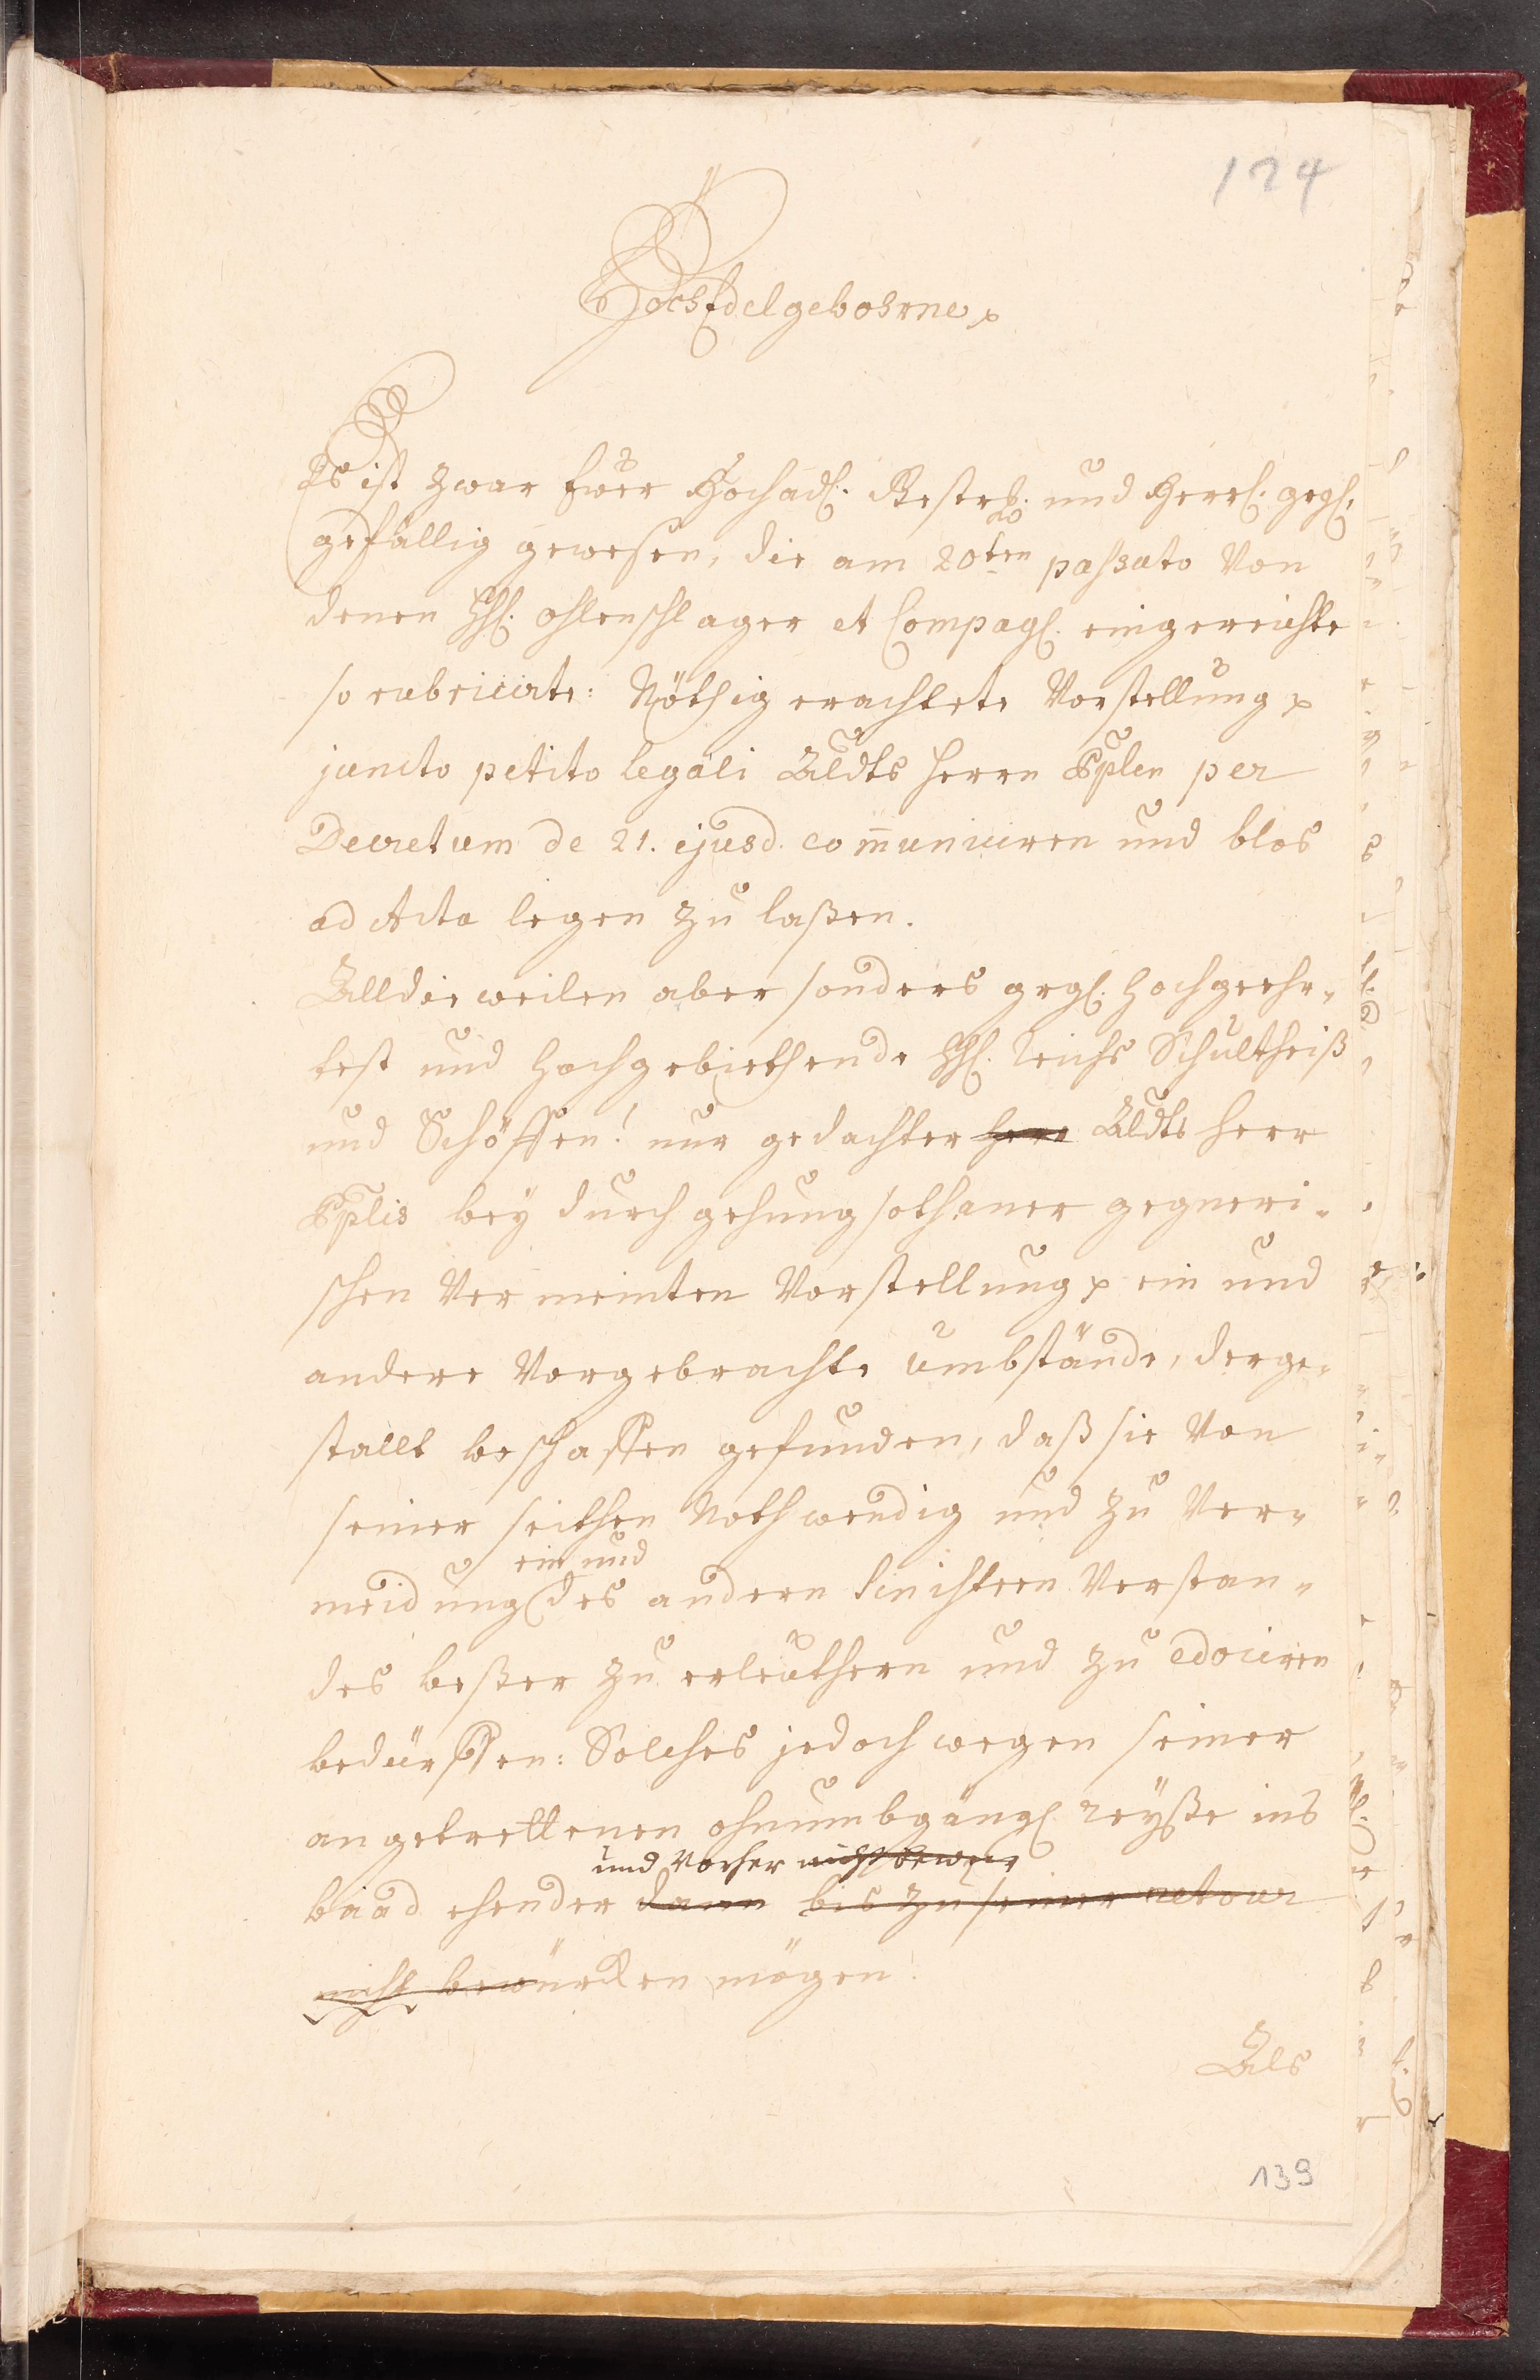 124
HochEdelgebohrne p
Es ist zwar Ewer Hochadl. Gestr. und Herrl. grgl.
gefällig gewesen, die am 20ten passato von
denen HhL. Ohlenschlager et Compagl. eingereichte
so rubricirte: Nöthig erachtete Vorstellung p
juncto petito legali Aldts Herrn Pplen per
Decretum de 21. ejusd. com̄uniciren und blos
ad Acta legen zu laßen.
Alldieweilen aber sonders grgl. Hochgeehr-
test und Hochgebiethende HhL. Reichs Schultheiß
und Schöffen! nur gedachter Herr Aldts Herr
Pplis bey durchgehung sothaner gegneri-
schen Vermeinten Vorstellung p ein und
andere Vorgebrachte Umbstände, derge-
stallt beschaffen gefunden, daß sie Von
seiner seithen Nothwendig und zu Ver-
ein und
meidung des andern sinistren Verstan-
des beßer zu erleüthern und zu edociren
bedürffen: Solches jedoch wegen seiner
angetrettenen ohnumbgängl reyße ins
und Vorher nicht bewür
baad ehender dann bis zu seiner retour
nicht bewürcken mögen!
Als
139